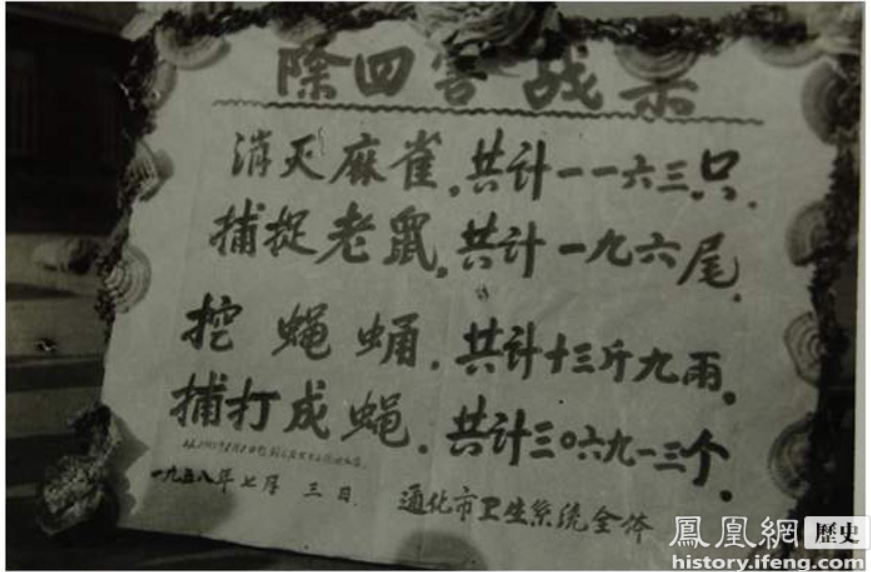 除四害战果
消灭麻雀，共计一一六三只.
捕捉老鼠，共计一九六尾.
挖蝇蛹，共计十三斤九两.
捕打成蝇，共计三〇六九一三个.
一九五八年七月三日.
通化市卫生系统全体
鳳凰網 歷史
history.ifeng.com